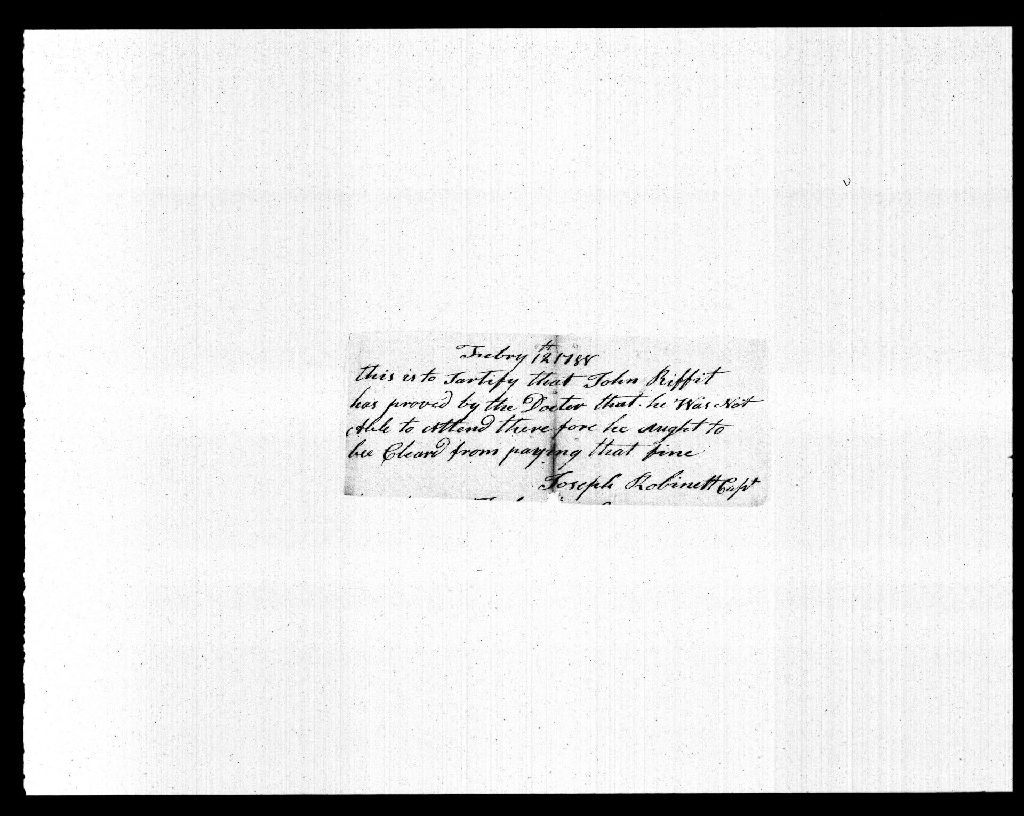 Febry 12th 1788
this is to Sartify that John Riffit
has proved by the Docter that he Was Not
Able to Attend there fore he Aught to
bee Cleard from paying that fine
Joseph Robinett Capt